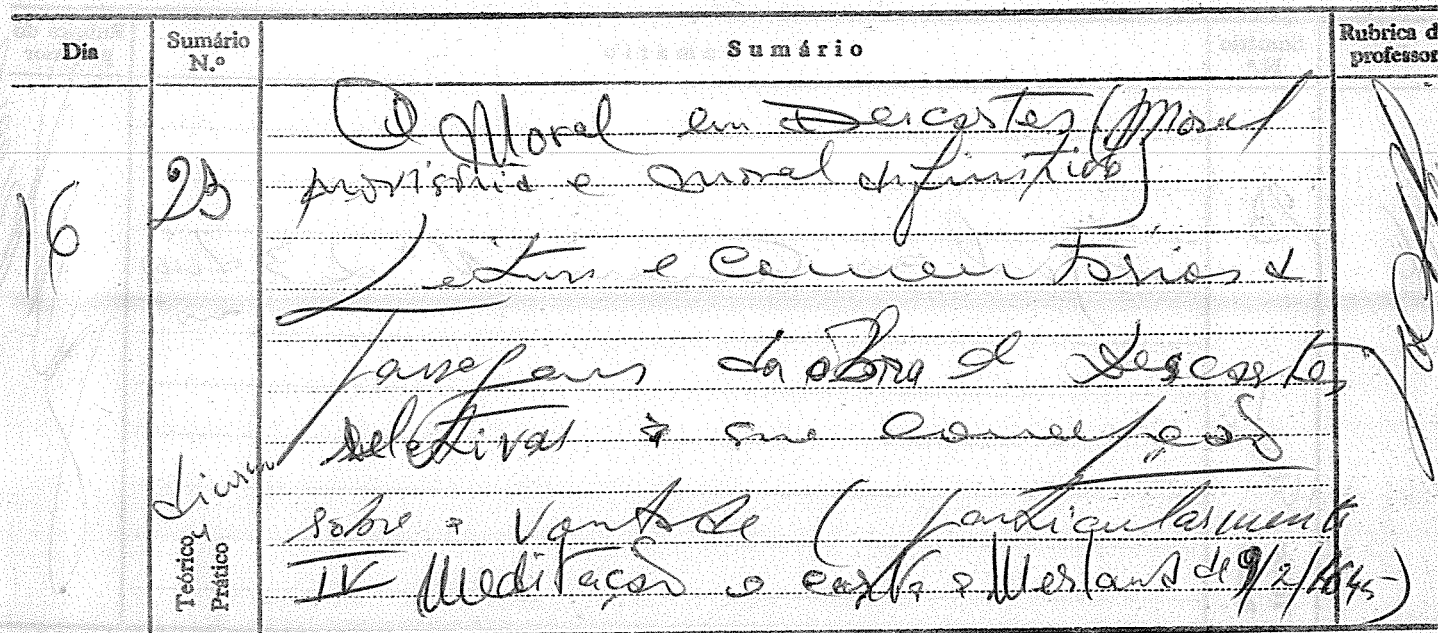 Dia Sumário N.º Sumário Rubrica d professor
16 23 A Moral em Descartes (Moral
provisória e moral definitiva)
Leitura e Comentários d
passagens da obra de Descartes
relativas à sua concepção
sobre a vontade (particularmente
IV Meditação e carta a Mesland de 9/2/1645)
Teórico Prático